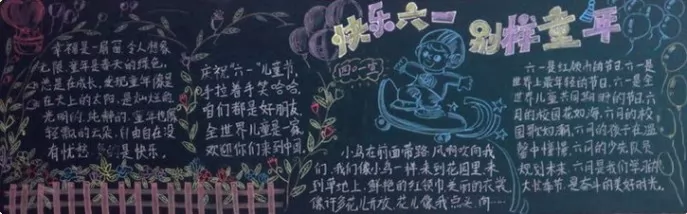 快乐六一
别样童年
幸福是一扇窗 令人想象
无限,童年是春天的绿色,
总是在成长,发现童年像是
在天上的太阳,是灿烂的
光明的,纯静的,童年也像
轻飘的云朵,自由自在没
有忧愁 是快乐。
庆祝“六一”儿童节,
手拉着手笑哈哈,
咱们都是好朋友,
全世界儿童是一家,
欢迎你们来到中国。
四一室
小鸟在前面带路,风啊吹向我
们,我们像小鸟一样 来到花园里,来
到草地上,鲜艳的红领巾,美丽的衣裳,
像许多花儿开放,花儿像我点头问……
六一是红领巾的节日,六一是
世界上最年轻的节日,六一是全
世界儿童共同期盼的节日,六
月的校园花如海,六月的校
园歌如潮,六月的孩子在温
馨中憧憬,六月的少先队员
规划未来,六月是我们学海的
大长车节,是奋斗的美好时光。